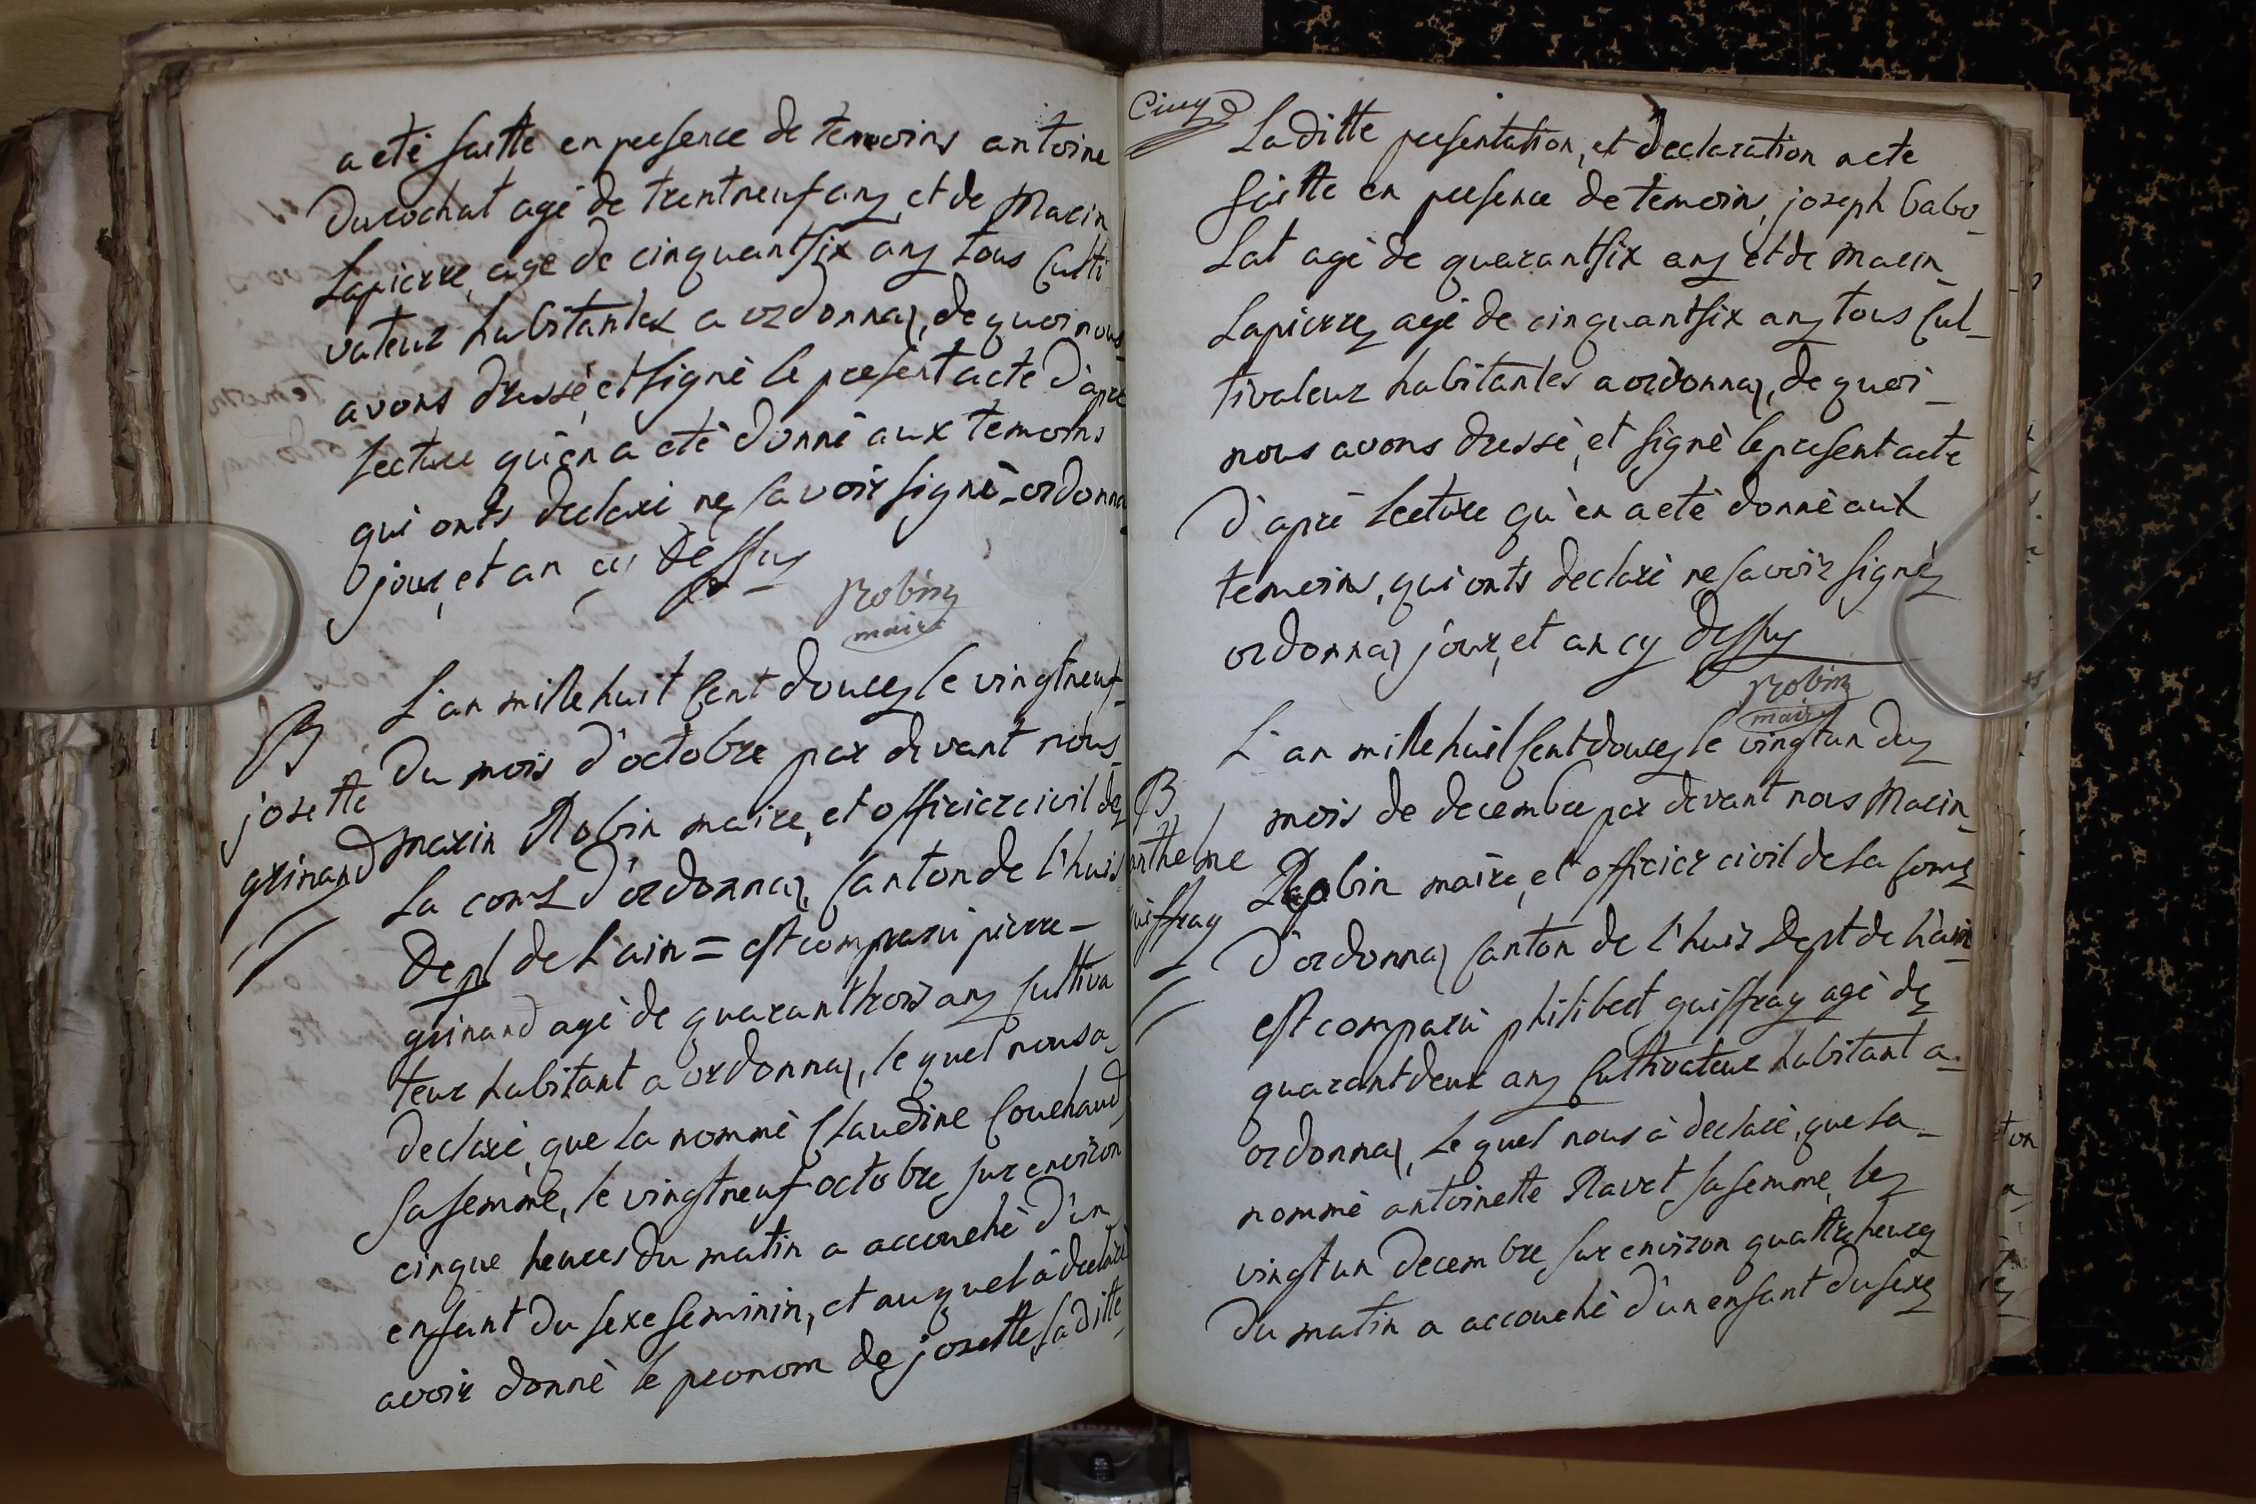 a eté faitte en presence de temoins antoine
Ducochat agé de trentneuf ans, et de Marin
Lapierre, age de cinquantsix ans tous Culti
vateur habitantes a ordonnaz, de quoi nous
avons dressé, et signé le present acte d'apre
Lecture qu'en a eté donné aux temoins
qui onts declaré ne savoir signé ordonna
jour, et an cy dessus
Robin
maire
B
josette
grinand
L'an mille huit cent douce, le vingtneuf
du mois d'octobre par devant nous
marin Robin maire, et officier civil de
La com d'ordonnaz, Canton de l'huis
Dept de L'ain = est comparu pierre
grinand agé de quarantrois ans cultiva
teur habitant a ordonnaz, le quel nous a
declaré, que la nommé Claudine Couchaud
sa femme, le vingtneuf octobre sur environ
cinque heures du matin a accouché d'un
enfant du sexe feminin, et au quel a declaré
avoir donné le pronom de josette, la ditte
Cinq
Laditte presentation, et declaration acte
faitte en presence de temoins, joseph babo
Lat agé de quarantsix ans et de Marin
Lapierre, agé de cinquantsix ans tous Cul
tivateur habitantes a ordonnaz, de quoi
nous avons dressé, et signé le present acte
d'apré Lecture qu'en a eté donné aux
temoins, qui onts declaré ne savoir signé
ordonnaz jour, et an cy dessus
Robin
maire
B
anthelme
guiffray
L'an mille huit cent douce, le vingtun du
mois de decembre par devant nous Marin
Robin maire, et officier civil de La com
d'ordonnaz Canton de l'huis Dept de L'ain
est comparu philibert guiffray agé de
quarantdeux ans Cultivateur habitant a
ordonnaz, Le quel nous à declaré, que La
nommé antoinette Ravet sa femme, le
vingtun decembre sur environ quattre heures
du matin a accouché d'un enfant du sexe